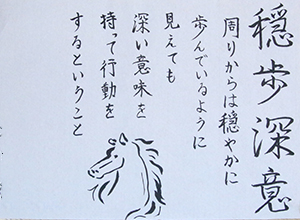 穏歩深意
周りからは穏やかに
歩んでいるように
見えても
深い意味を
持って行動を
するということ